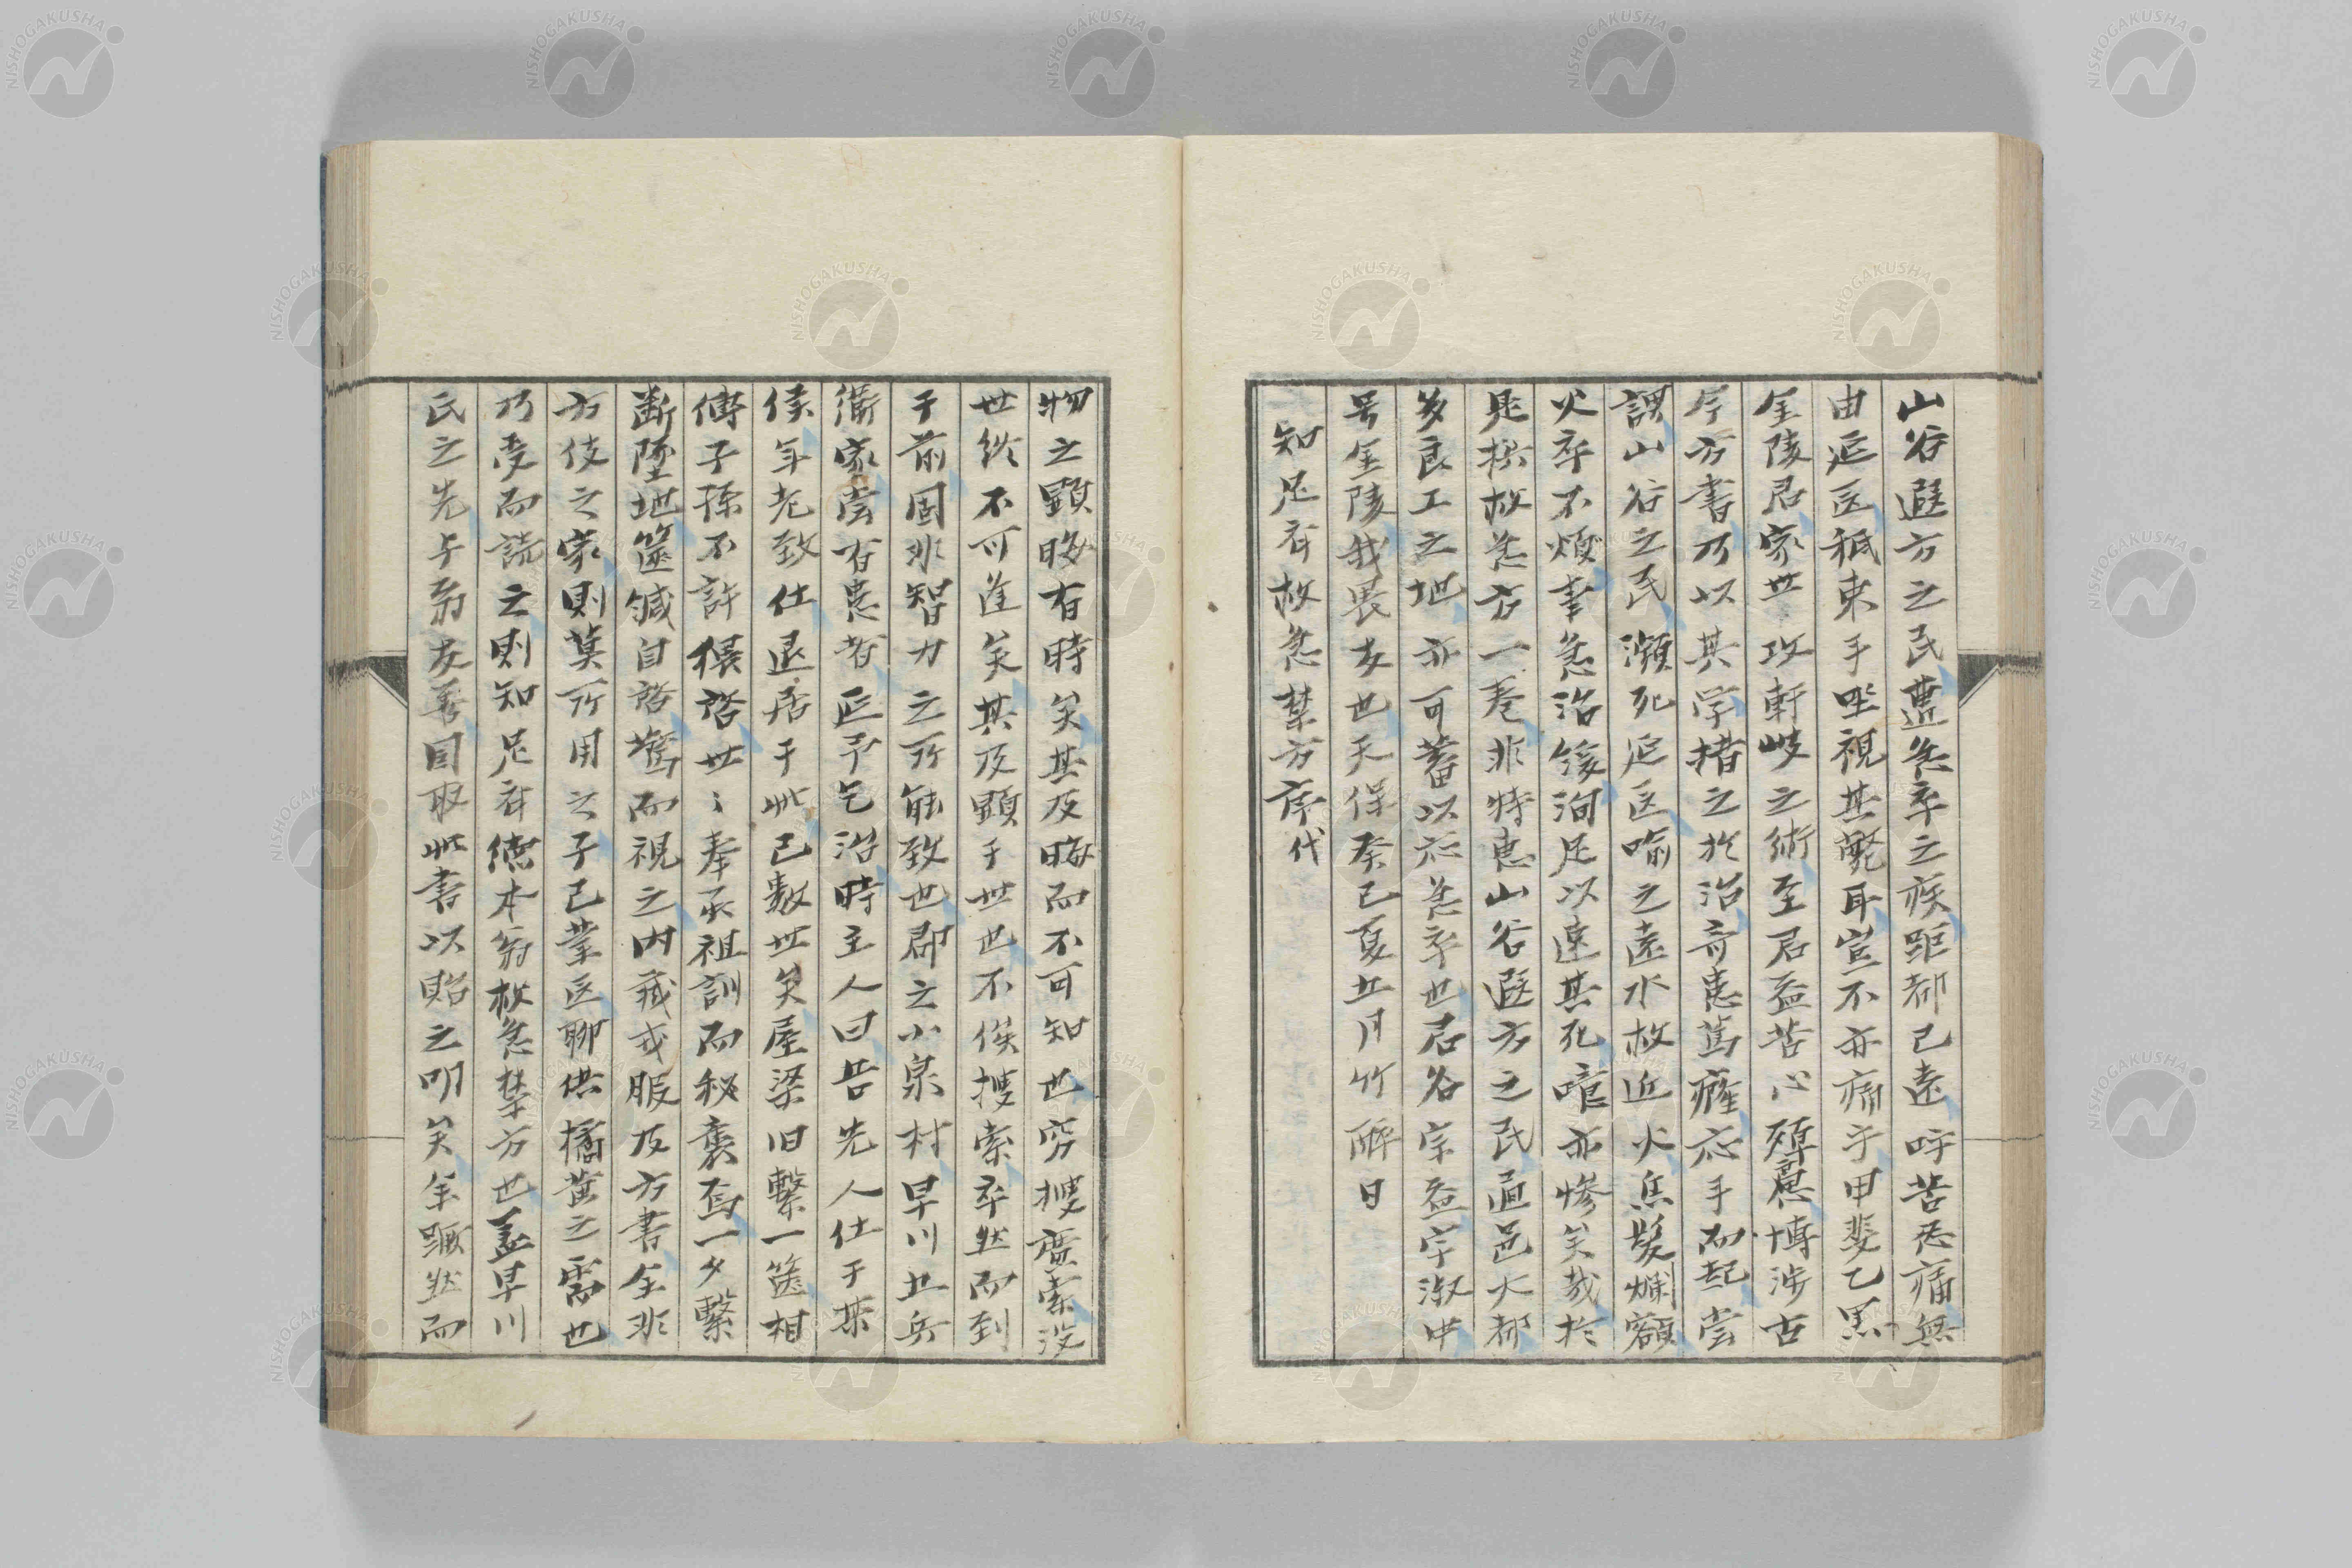 山谷遐方之民遭急卒之疾距都已遠呼苦忍痛無
由延医秖束手坐視其斃耳豈不亦痛乎甲斐乙黒
金陵君家世攻軒岐之術至君益苦心殫慮博渉古
今方書乃以其学措之於治奇患篤癃応手而起嘗
謂山谷之民瀕死延医喻之遠水救近火焦髪爛額
火卒不熄事急治緩洵足以速其死噫亦惨矣哉於
是撰救急方一巻非特恵山谷遐方之民通邑大都
多良工之地亦可蓄以応急卒也君名宗益字淑中
号金陵我畏友也天保癸巳夏五月竹酔日
知足斎救急禁方序代
物之顕晦有時矣其及晦而不可知也窮捜広索没
世終不可逢矣其及顕于世也不俟捜索卒然而到
于前固非智力之所能致也郡之小泉村早川五兵
衛家嘗有患者延予乞治時主人曰吾先人仕于某
侯年老致仕退居于此已数世矣屋梁旧繋一篋相
傳子孫不許猥啓世〻奉承祖訓而秘襲焉一夕繋
断墜地篋緘自啓驚而視之内蔵戎服及方書全非
方伎之家則莫所用之子已業医聊供橘黄之需也
乃受而読之則知足斎徳本翁救急禁方也蓋早川
氏之先与翁友善因取此書以貽之明矣余蹶然而